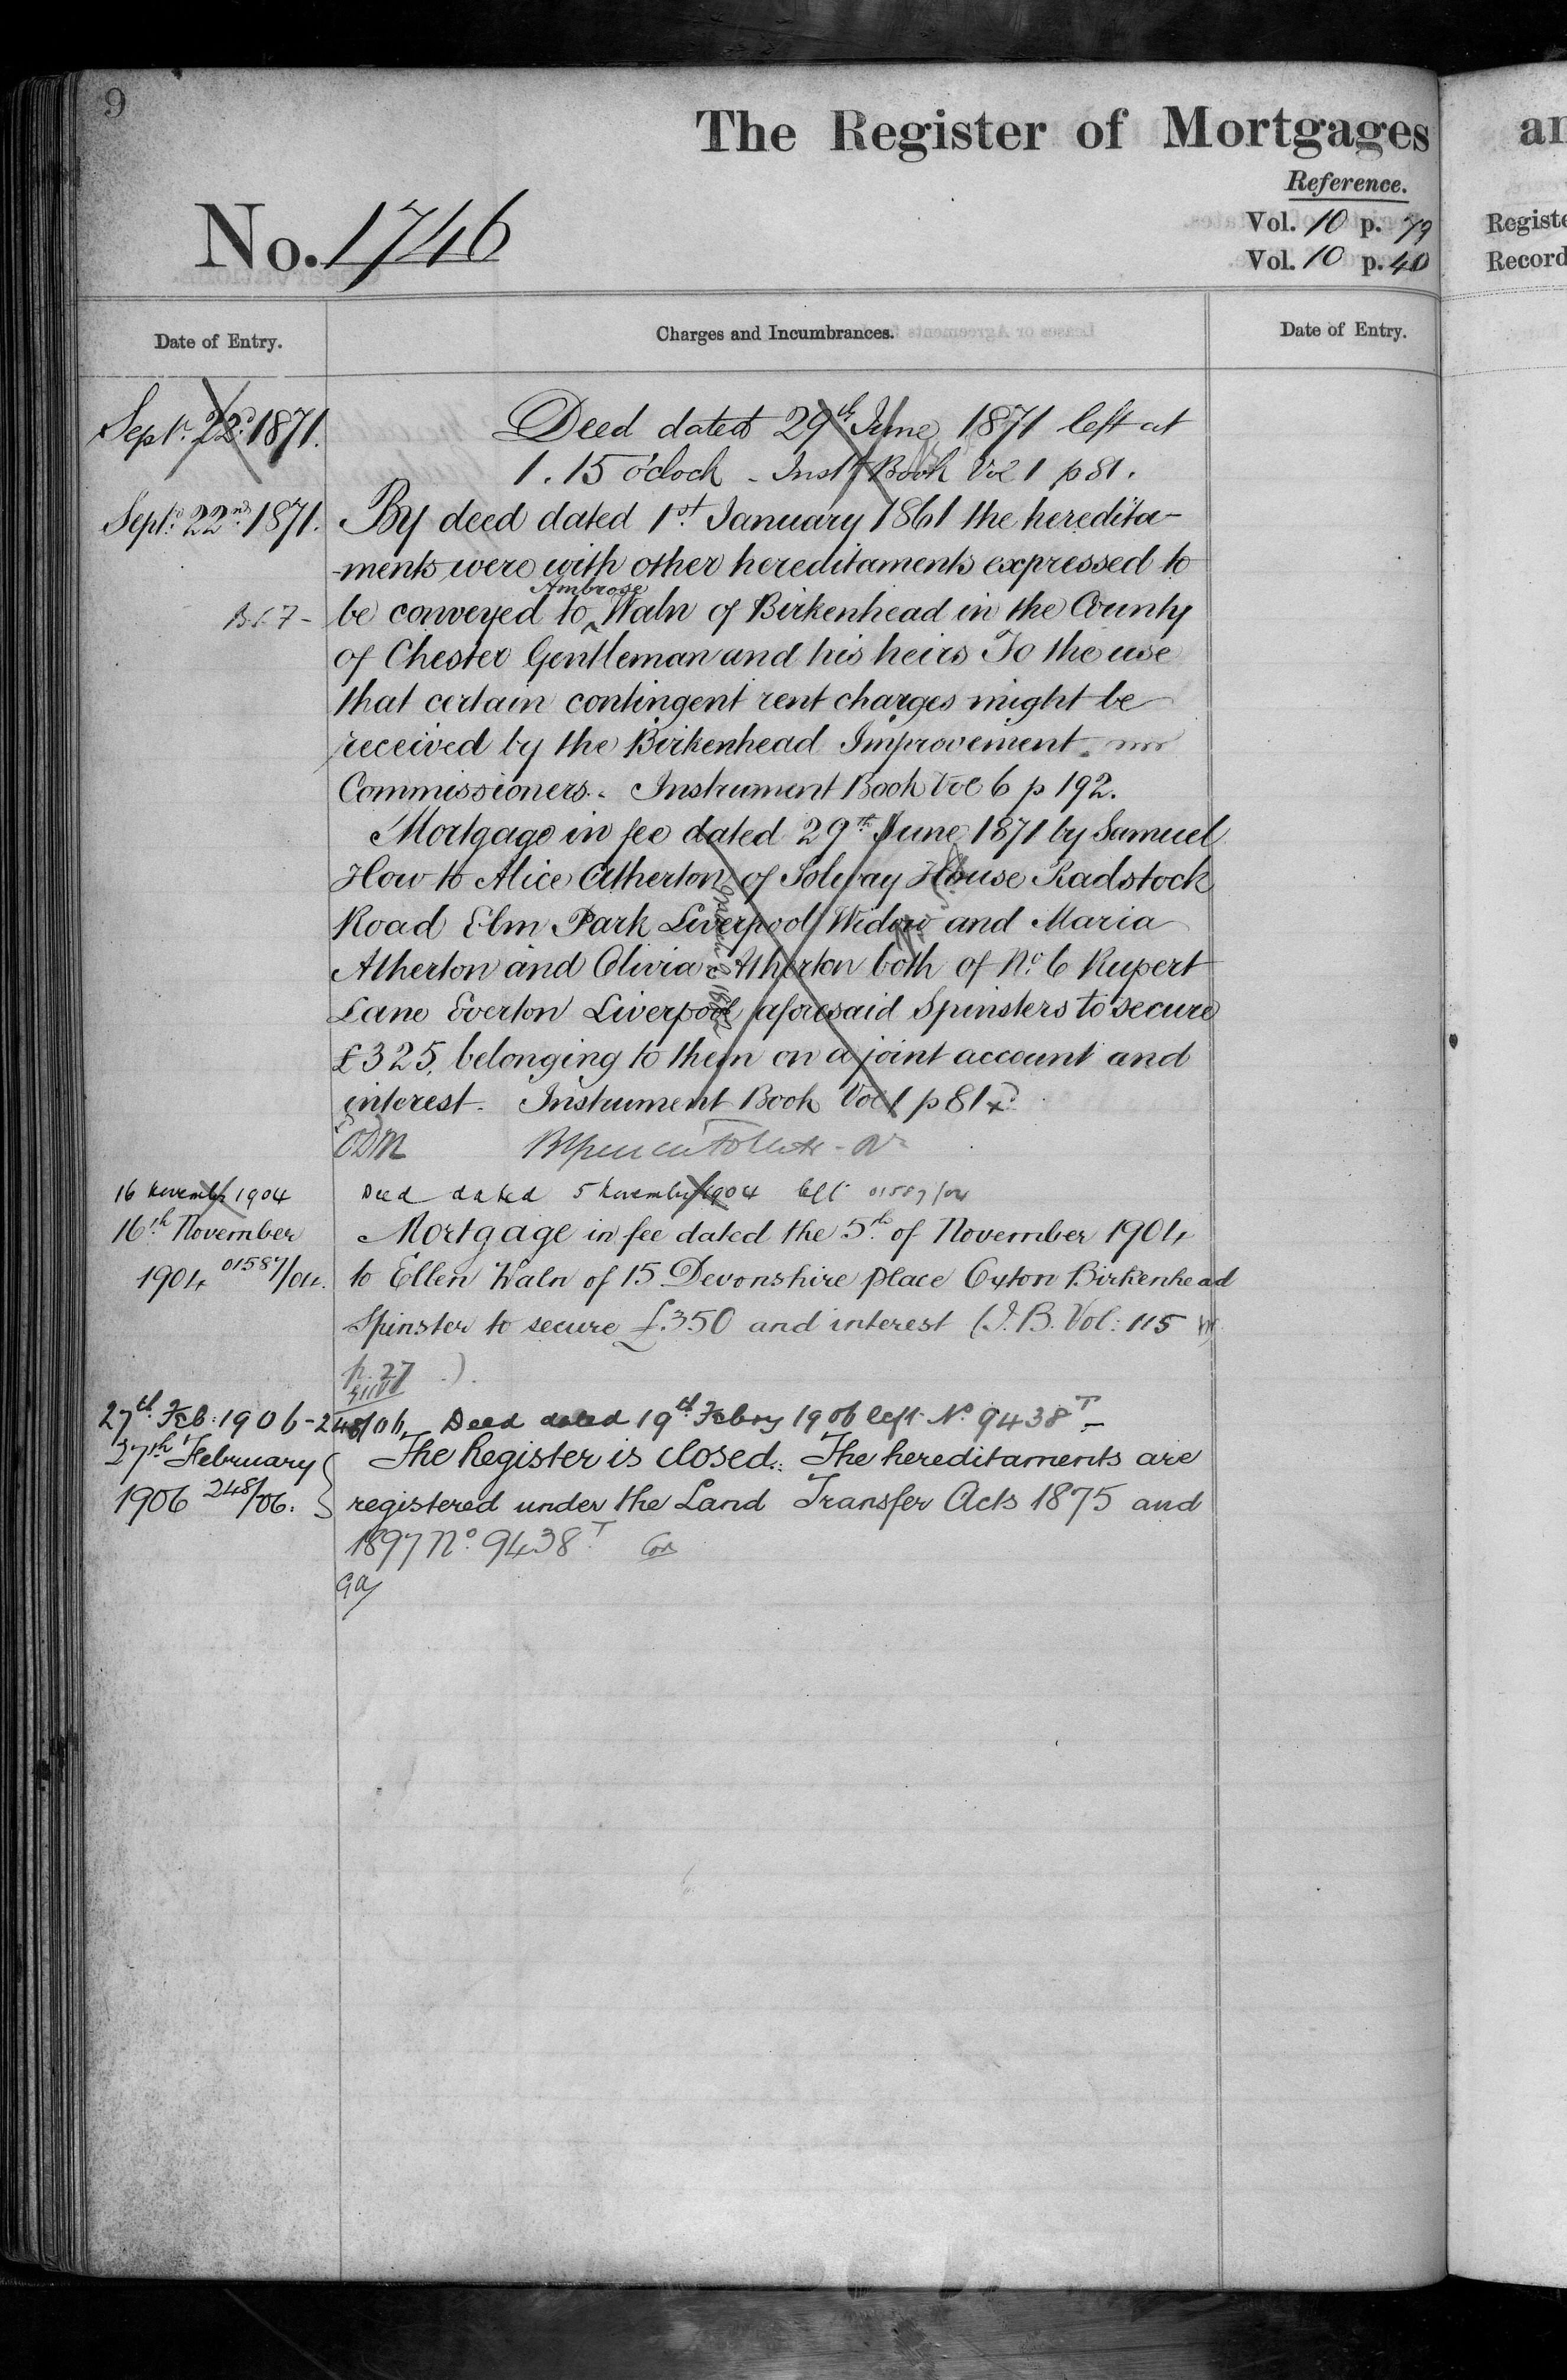 9
The Register of Mortgages
Reference.
No. 1746
Vol. 10 p. 79
Vol. 10 p. 40
Date of Entry.
Charges and Incumbrances.
Date of Entry.
Sept. 22d. 1871.
Deed dated 29th June 1871 left at
1.15 o'clock - Inst Book Vol 1 p 81.
Sept. 22nd 1871.
By deed dated 1st January 1861 the heredita-
-ments were with other hereditaments expressed to
Ambrose
be conveyed to ^ Waln of Birkenhead in the County
of Chester Gentleman and his heirs To the use
that certain contingent rent charges might be
received by the Birkenhead Improvement
Commissioners. Instrument Book Vol 6 p 192.
Mortgage in fee dated 29th June 1871 by Samuel
How to Alice Atherton of Solway House Radstock
Road Elm Park Liverpool Widow and Maria
Atherton and Olivia Atherton both of No. 6 Rupert
Lane Everton Liverpool aforesaid Spinsters to secure
£325, belonging to them on a joint account and
interest. Instrument Book Vol 1 p 81
16 November 1904
Deed dated 5 November 1904 left 01587/04
16th November
1904 01587/04.
Mortgage in fee dated the 5th of November 1904
to Ellen Waln of 15 Devonshire place Oxton Birkenhead
Spinster to secure £350 and interest (I.B. Vol: 115
p. 27 ).
27th Feb: 1906 - 248/06. Deed dated 19th Febry 1906 left No. 9438T -
27th February
1906 248/06.
The Register is closed. The hereditaments are
registered under the Land Transfer Acts 1875 and
1897 No. 9438T
an
Registe
Record